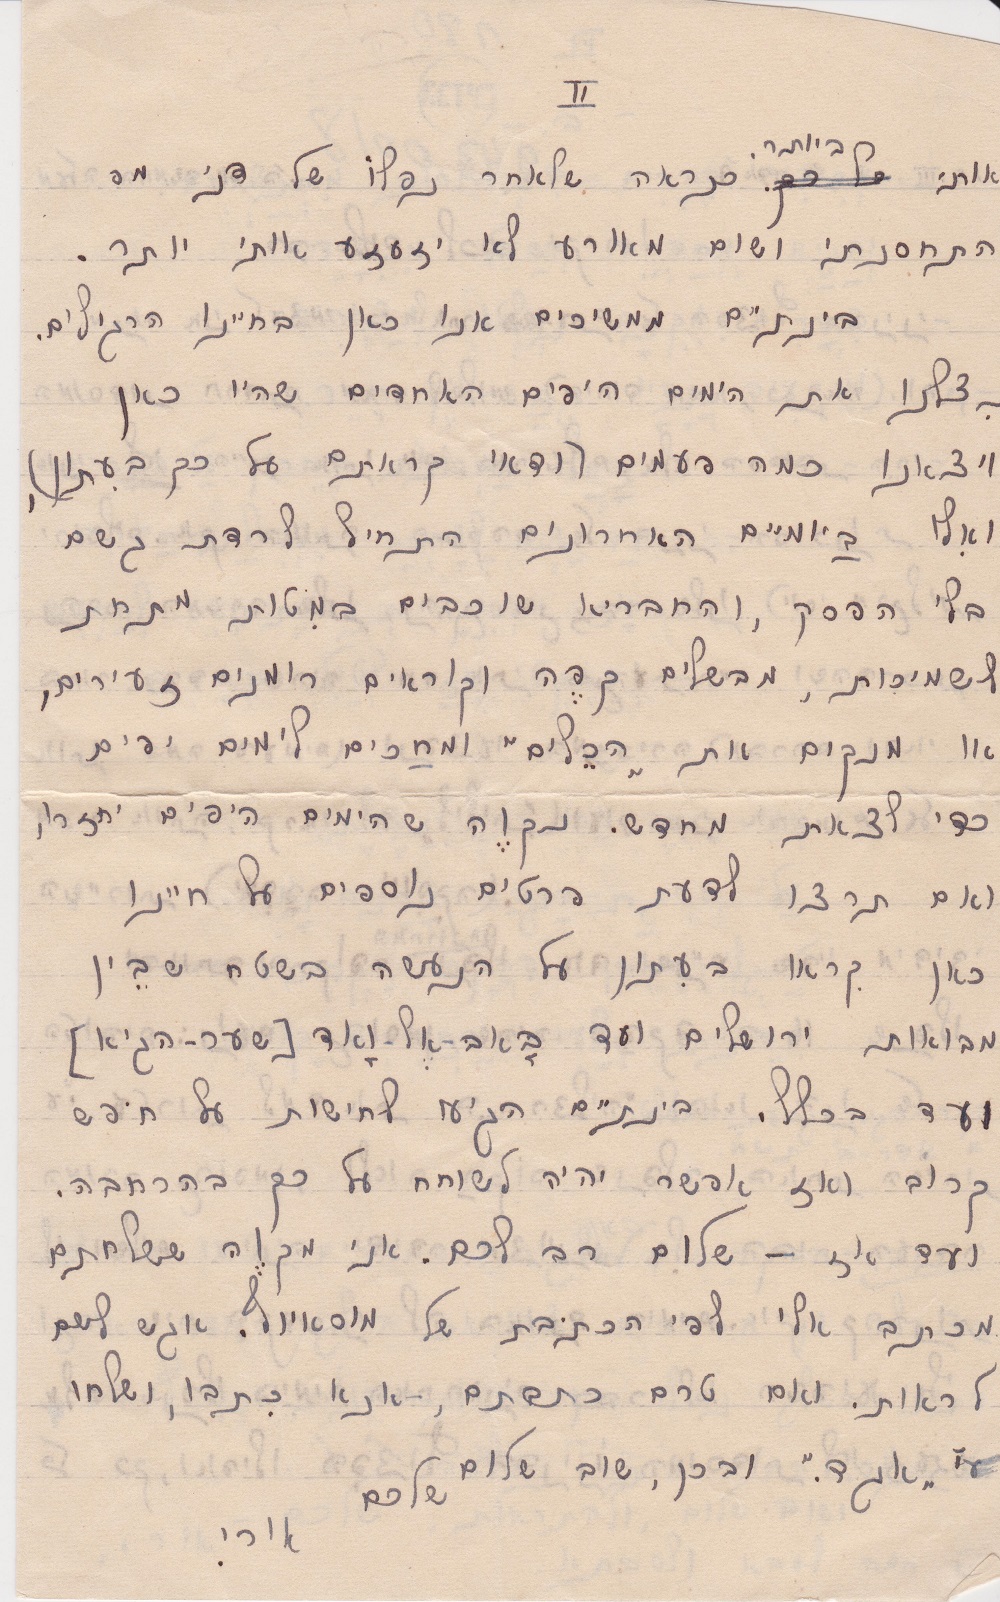 II
ביותר.
אותי כל כך. כנראה שלאחר נפלו של דני מס
התחסנתי ושום מאורע לא יזעזע אותי יותר.
בינתיים ממשיכים אנו כאן בחיינו הרגילים.
נִצלנו את הימים היפים האחדים שהיו כאן
ויצאנו כמה פעמים (ודאי קראתם על כך בעִתון),
ואִלו בַּיומיים האחרונים התחיל לרדת גשם
בלי הפסק, והחבריא שוכבים במִטות מתחת
לשמיכות, מבשלים קפֶּה וקוראים רומנים זעירים,
או מנקים את "הכֵּלים" ומחַכים לימים יפים
כדי לצאת מחדש. נקוֶה שהימים היפים יחזרו,
ואם תרצו לדעת פרטים נוספים על חיינו
כאן קִראו בעִתון על הנעשה בשטח שבֵּין
מבואות ירושלים ועד בָּאב-אֶל-וָאד [שער-הגיא]
ועד בכלל. בינתיים הגיעו לחישות על חֹפש
קרוב ואז אפשר יהיה לשוחח על כך בהרחבה.
ועד אז – שלום רב לכם. אני מקוֶה ששלחתם
מכתב אלי לפי הכתֹבת של מוסאיוף. אגש לשם
לראות. ואם טרם כתבתם, – אנא כִּתבו, ושלחו
ע"י "אגד". ובכן, שוב שלום
שלכם
אורי.